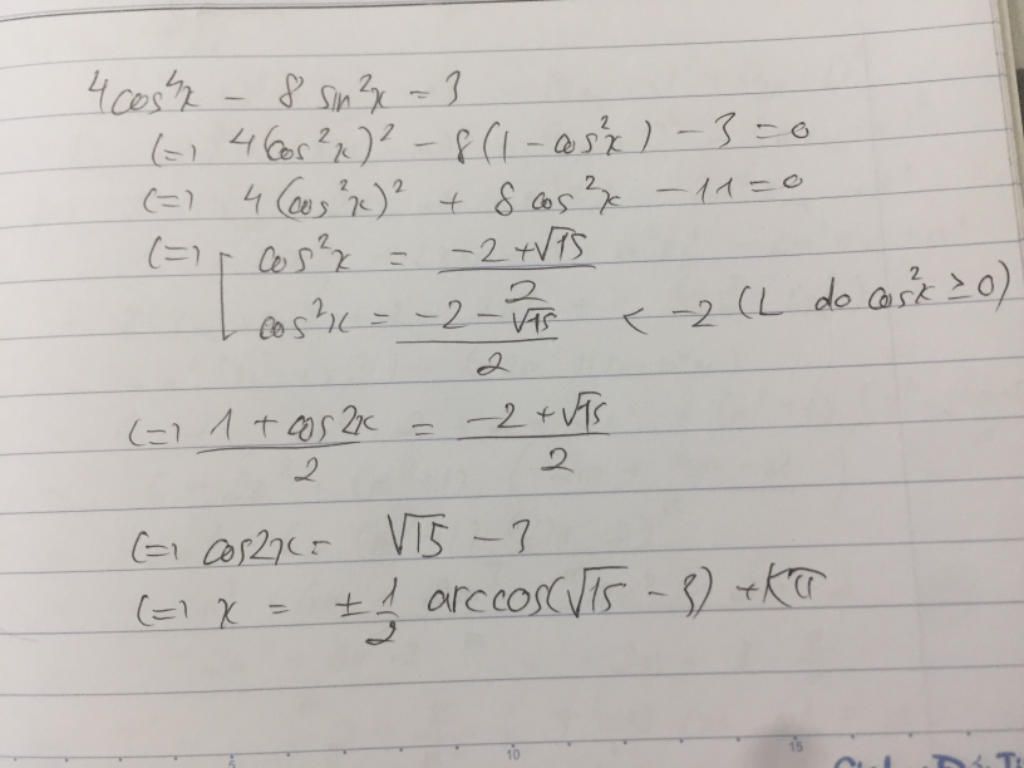 4cos⁴x − 8 sin²x = 3
(=) 4(cos²x)² − 8(1 − cos²x) − 3 = 0
(=) 4(cos²x)² + 8cos²x − 11 = 0
(=) [ cos²x = (−2 + √15)/2
cos²x = (−2 − √15)/2 < −2 (L do cos²x ≥ 0)
(=) (1 + cos2x)/2 = (−2 + √15)/2
(=) cos2x = √15 − 3
(=) x = ± 1/2 arccos(√15 − 3) + kπ
5 10 15